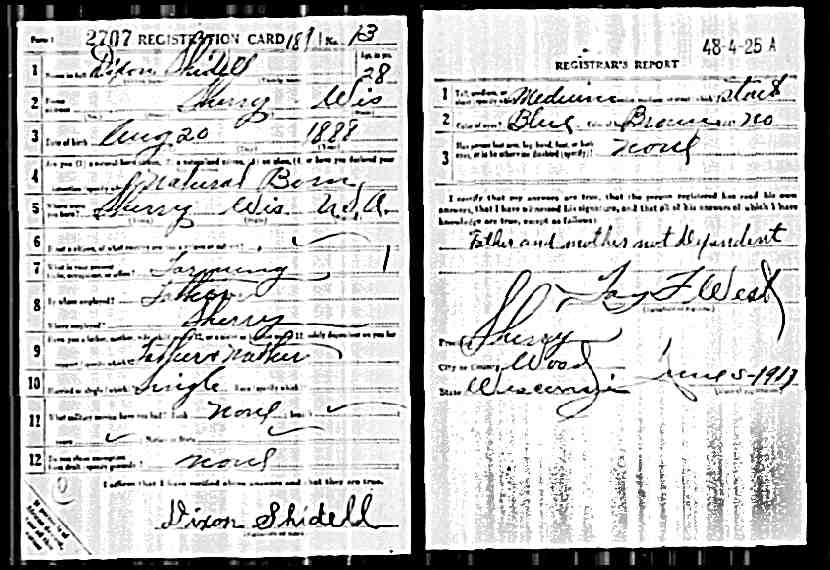 Form 1 2707 REGISTRATION CARD 1891 No. 13
1 Name in full Dixon Shidell Age, in yrs. 28
2 Home address Sherry Wis
3 Date of birth Aug 20 1888
4 Are you (1) a natural born citizen, (2) a naturalized citizen, (3) an alien, (4) or have you declared your
intention (specify which)? Natural Born
5 Where were you born? Sherry Wis U.S.A.
6 If not a citizen, of what country are you a citizen or subject?
7 What is your present trade, occupation, or office? Farming 1
8 By whom employed? Father
Where employed? Sherry
9 Have you a father, mother, wife, child under 12, or a sister or brother under 12, solely dependent on you for
support (specify which)? Father & Mother
10 Married or single (which)? Single Race (specify which)?
11 What military service have you had? Rank none branch
years Nation or State
12 Do you claim exemption from draft (specify grounds)? none
I affirm that I have verified above answers and that they are true.
Dixon Shidell
48-4-25 A
REGISTRAR'S REPORT
1 Tall, medium, or short (specify which)? Medium Slender, medium, or stout (which)? stout
2 Color of eyes? Blue Color of hair? Brown Bald? no
3 Has person lost arm, leg, hand, foot, or both eyes, or is he otherwise disabled (specify)? none
I certify that my answers are true, that the person registered has read his own
answers, that I have witnessed his signature, and that all of his answers of which I have
knowledge are true, except as follows:
Father and mother not dependent
Fay F West
Precinct Sherry
City or County Wood
State Wisconsin June 5-1917